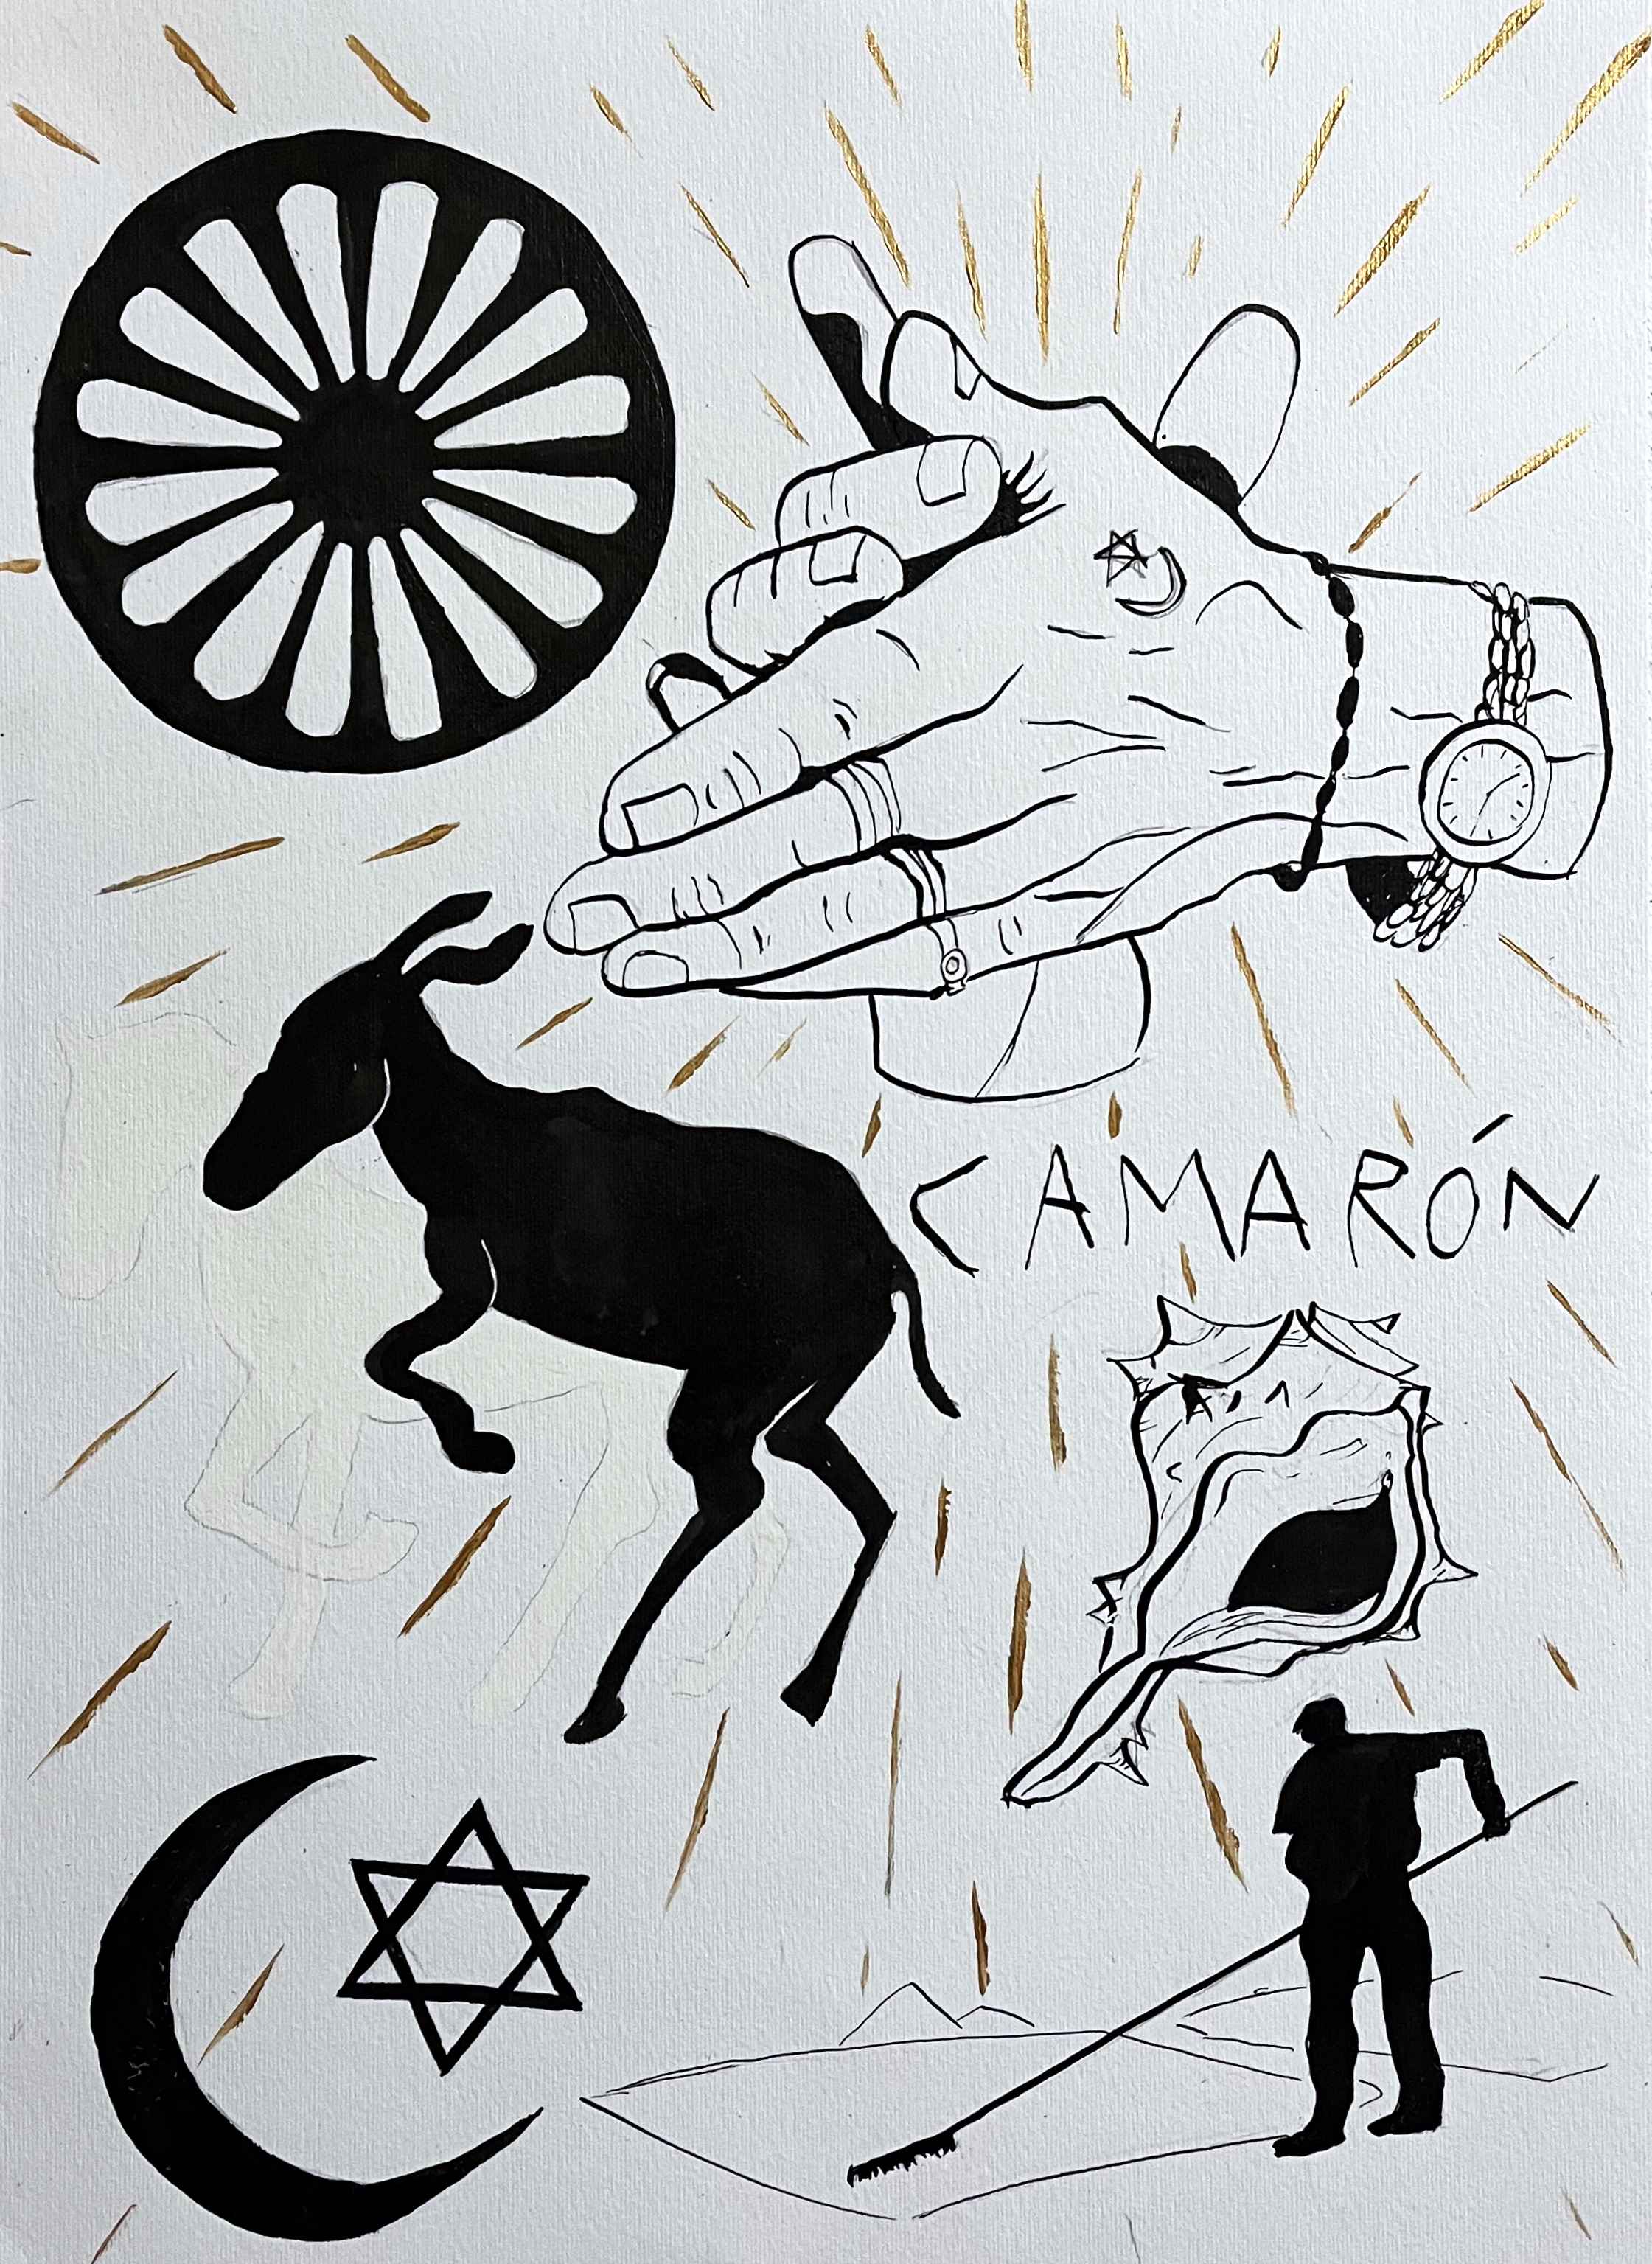 CAMARÓN